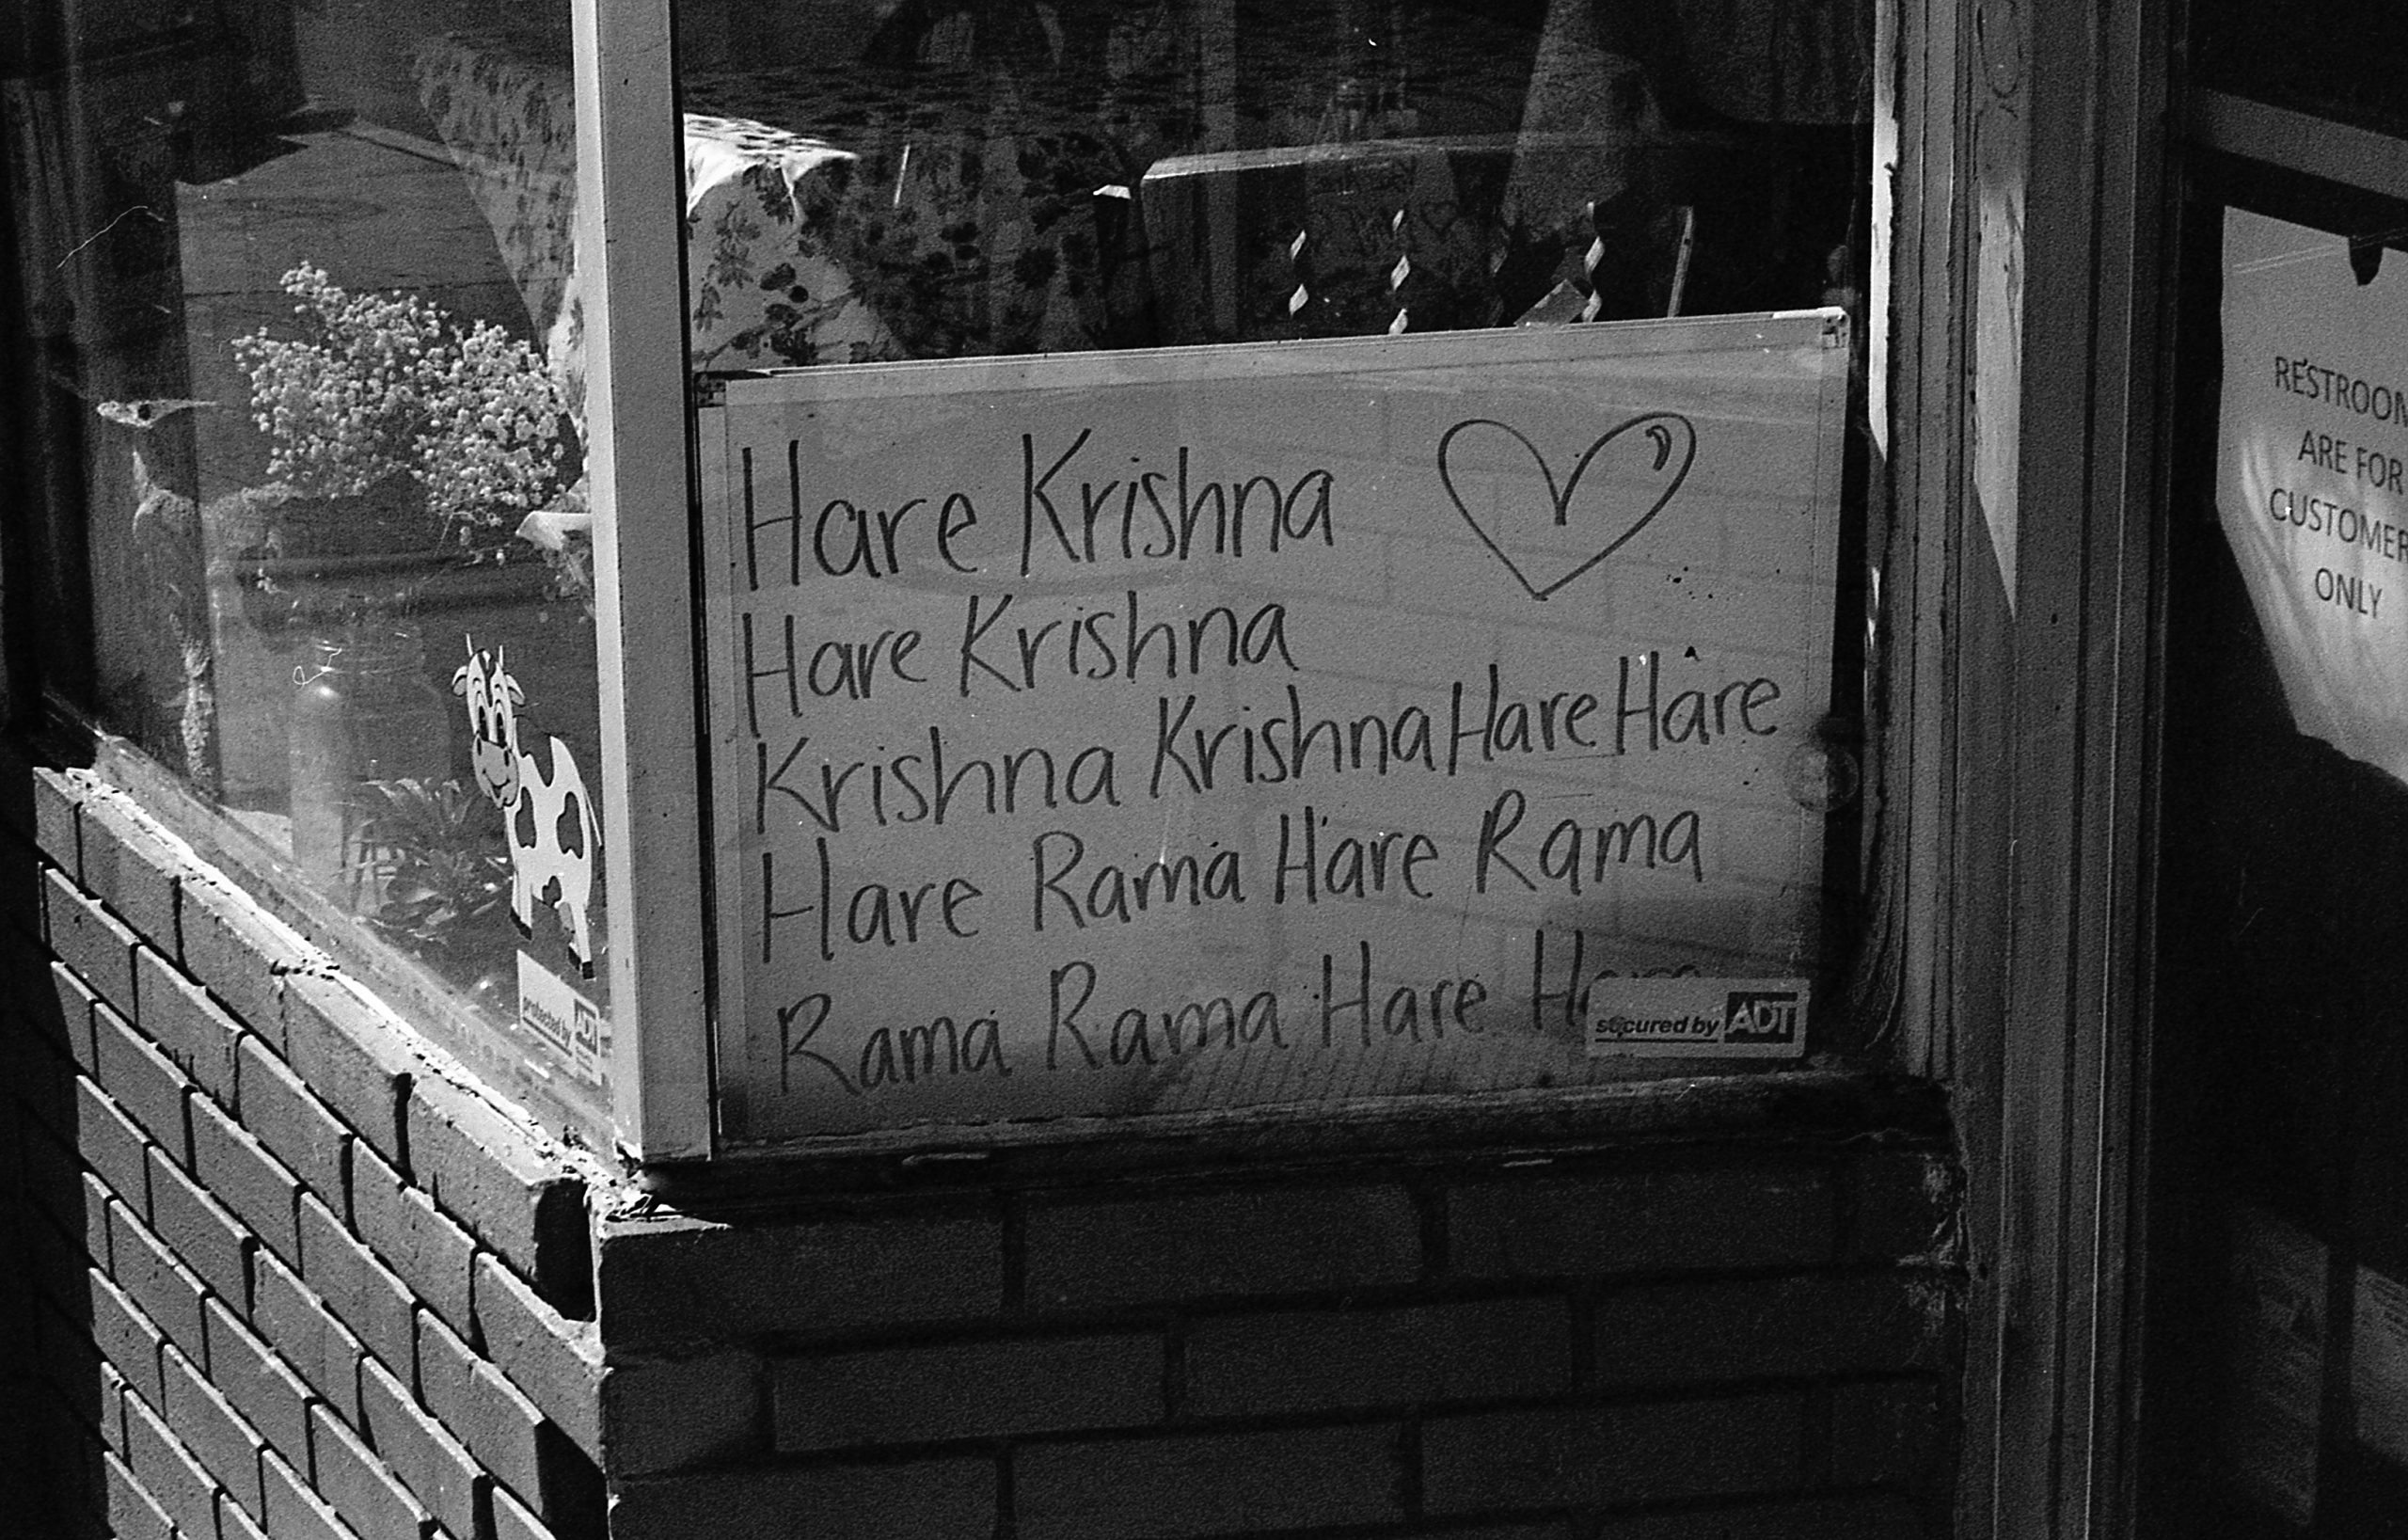 Hare Krishna
Hare Krishna
Krishna Krishna Hare Hare
Hare Rama Hare Rama
Rama Rama Hare
secured by ADT
protected by ADT
ARE FOR
ONLY